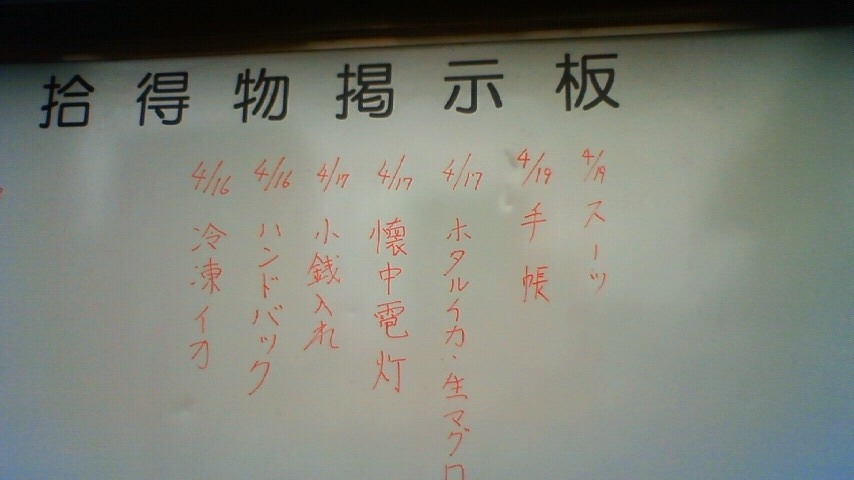 拾得物掲示板
4/19 スーツ
4/19 手帳
4/17 ホタルイカ・生マグロ
4/17 懐中電灯
4/17 小銭入れ
4/16 ハンドバック
4/16 冷凍イカ